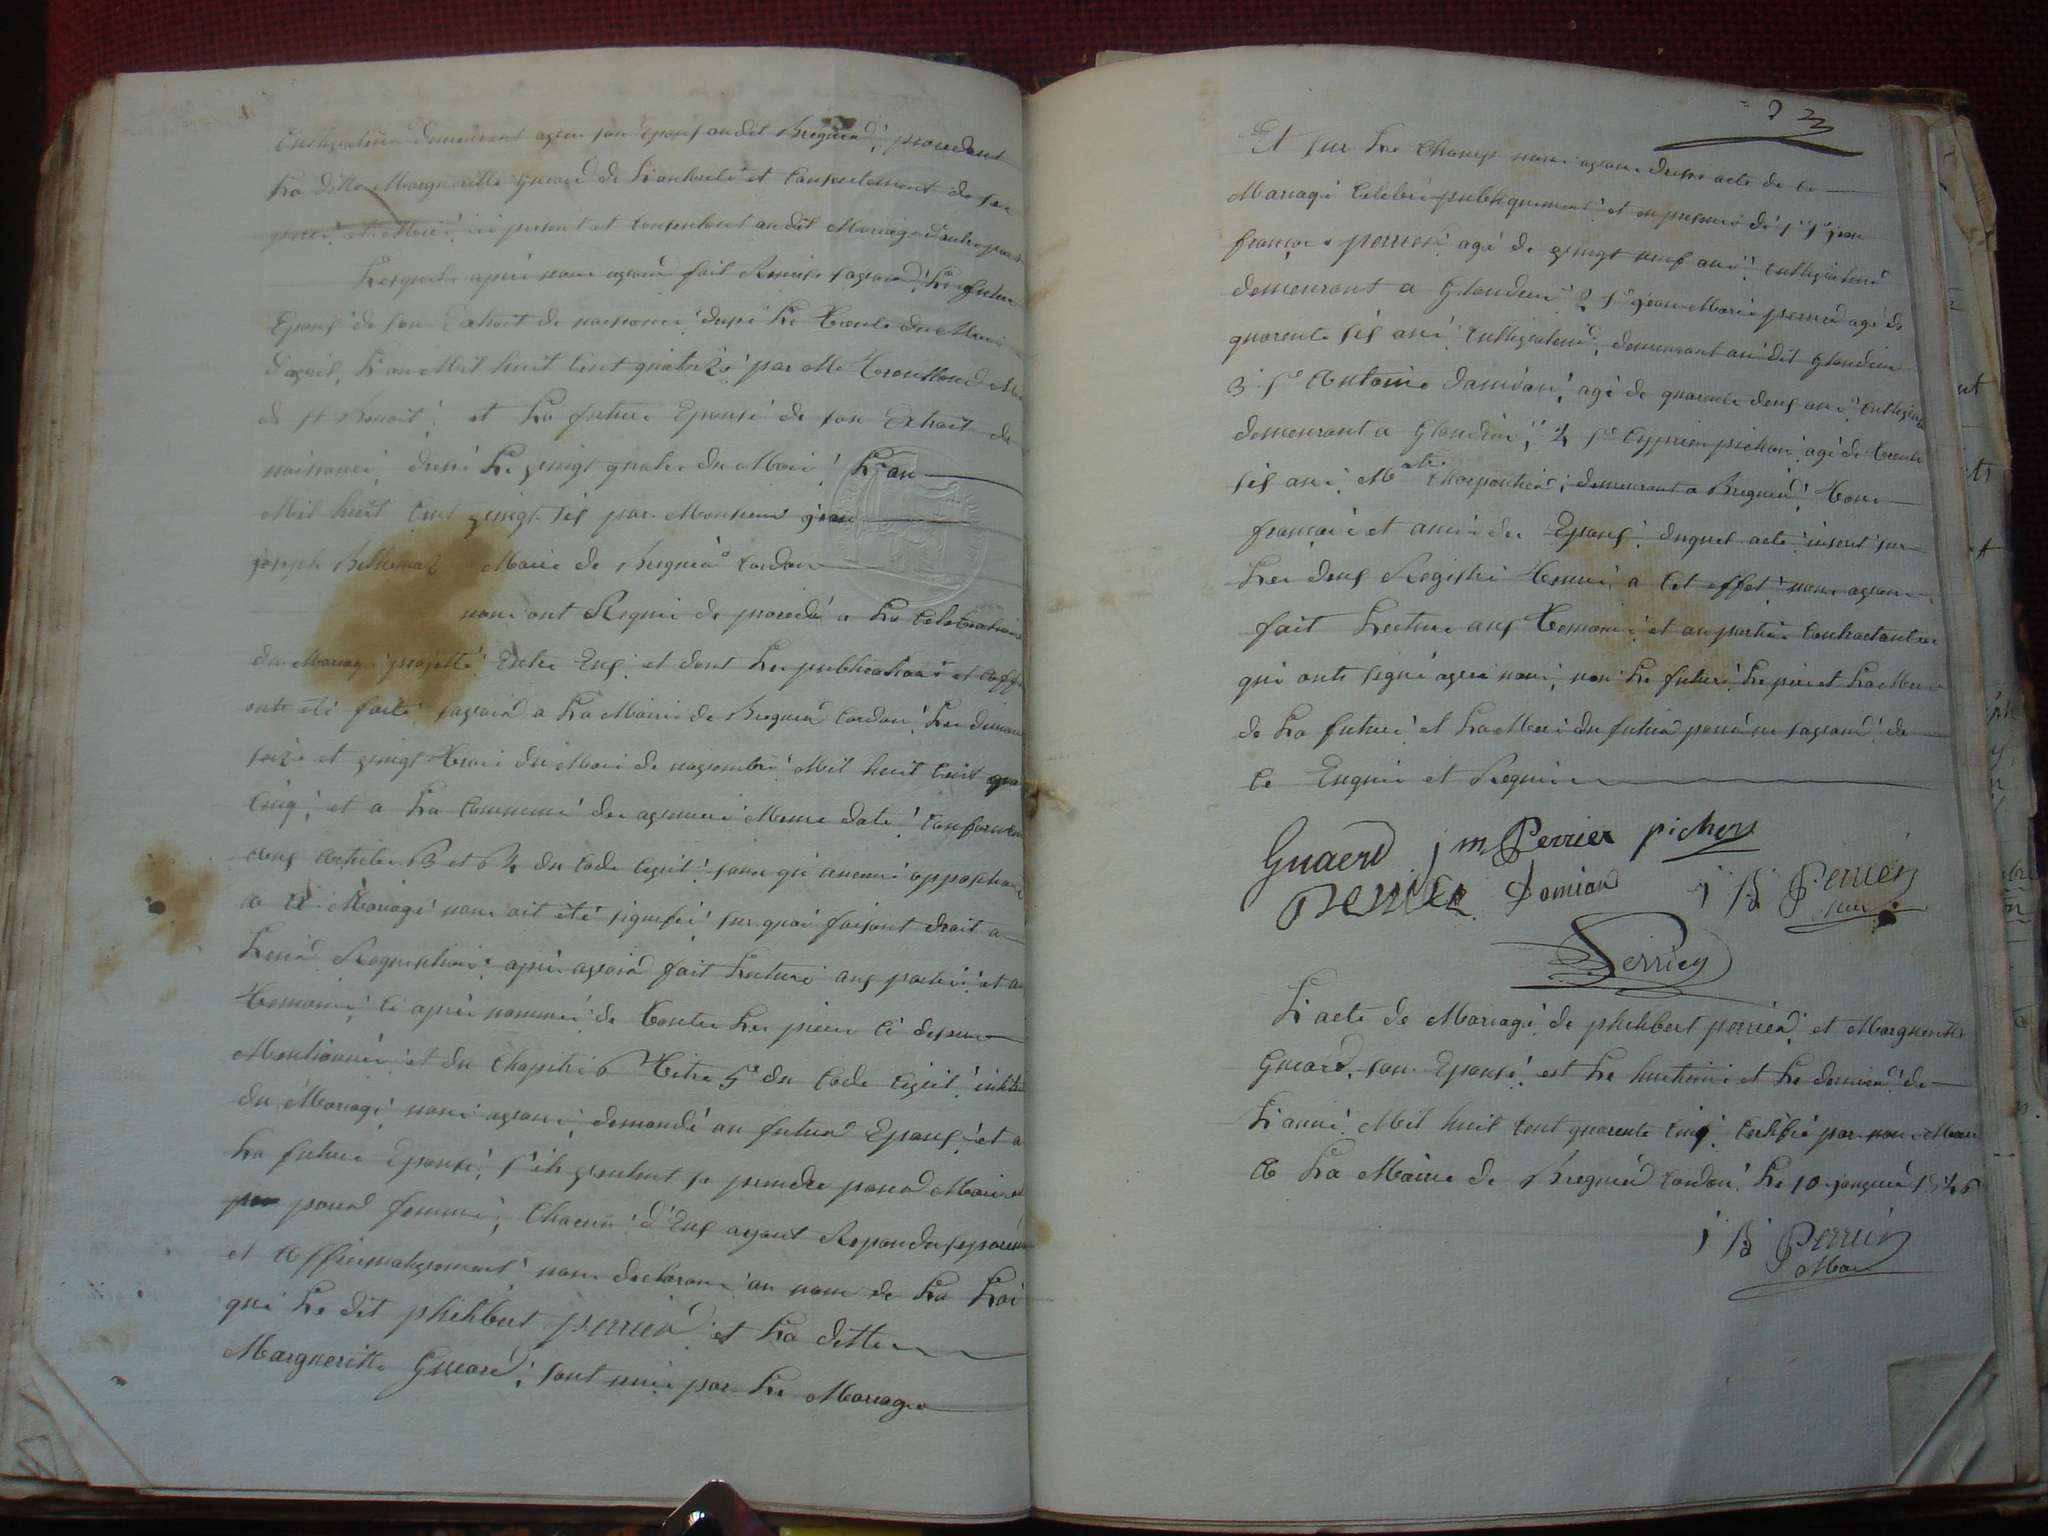 Cultivateur demeurant avec son Epouse au dit Bregnier, procedant
La ditte Margueritte Gueard de L'autorité et Consentement de ses
pere et Mere ici present et Consentant au dit Mariage d'autre part
Lesquels après nous avoir fait Remise savoir, Le futur
Epoux de son Extrait de naissance dressé Le trente du Mois
D'avril, L'an Mil huit Cent quatorze par Mr
de St Benoit, et La future Epouse de son Extrait de
naissance, dressé Le vingt quatre du Mois L'an
Mil huit Cent vingt six par Monsieur jean
joseph Maire de Bregnier Cordon
nous ont Requis de procedé a La Celebration
du Mariage projetté Entre Eux et dont Les publications et affiches
ont été faite savoir a La Mairie de Bregnier Cordon Les dimanches
seize et vingt trois du Mois de novembre Mil huit Cent
Cinq, et a La Commune des Meme date
aux Articles 63 et 64 du Code Civil, sans qu aucune opposition
a ce Mariage nous ait été signifié sur quoi faisant droit a
Leur Requisition, après avoir fait Lecture aux parties et aux
temoins Ci après nommés de toutes Les pieces Ci dessus
Mentionnés et du Chapitre 6 titre 5e du Code Civil, intitulé
du Mariage, nous avons demandé au futur Epoux et a
La future Epouse s'ils veulent se prendre pour Mari et
pour femme, Chacun d'Eux ayant Repondu separement
et affirmativement, nous declarons au nom de La Loi
que Le dit philibert perrier et La ditte
Margueritte Gueard, sont unis par Le Mariage
23
Et sur Le Champ nous avons dressé acte de ce
Mariage Celebré publiquement et en presence de 1° Sr jean
françois perrier agé de vingt neuf ans Cultivateur
demeurant a Glandieu 2 Sr jean Marie perrier agé de
quarente six ans Cultivateur, demeurant au dit Glandieu
3 Sr Antoine damian, agé de quarente deux ans Cultivateur
demeurant a Glandieu, 4 Sr Cyprien pichon agé de trente
six ans Mtre Charpentier, demeurant a Bregnier, tous
françois et amis des Epoux, duquel acte inscrit sur
Les deux Registre tenus a Cet effet nous avons
fait Lecture aux temoins et au parties Contractantes
qui ont signé avec nous, non La future, Le pere et La Mere
de La future et La Mere du futur pour ne savoir de
Ce Enquis et Requis
Gueard j m Perrier pichon
Perrier Damian j B Perrier
Maire
Perrier
L'acte de Mariage de philibert perrier, et Margueritte
Gueard, son Epouse est Le huitieme et Le dernier de
L'anné Mil huit Cent quarente Cinq Certifié par nous Maire
a La Mairie de Bregnier Cordon Le 10 janvier 1846
j B Perrier
Maire